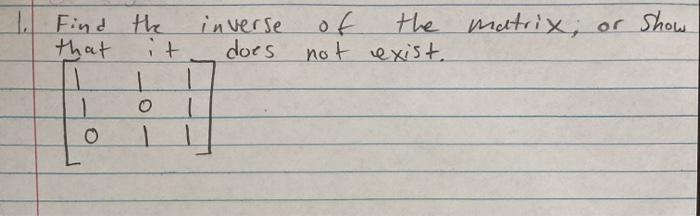 1. Find the inverse of the matrix, or show
that it does not exist.
1 1 1
1 0 1
0 1 1